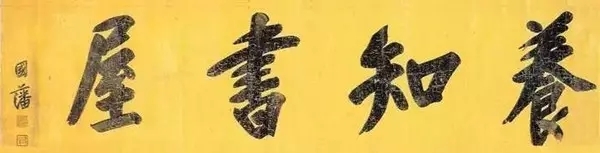 養知書屋
國藩